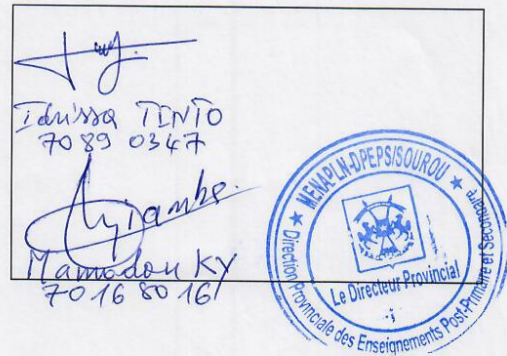 Idrissa TINTO
70 89 0347
Mamadou KY
70 16 80 16
★ MENAPLN-DPEPS/SOUROU ★
Direction Provinciale des Enseignements Post-Primaire et Secondaire
Le Directeur Provincial